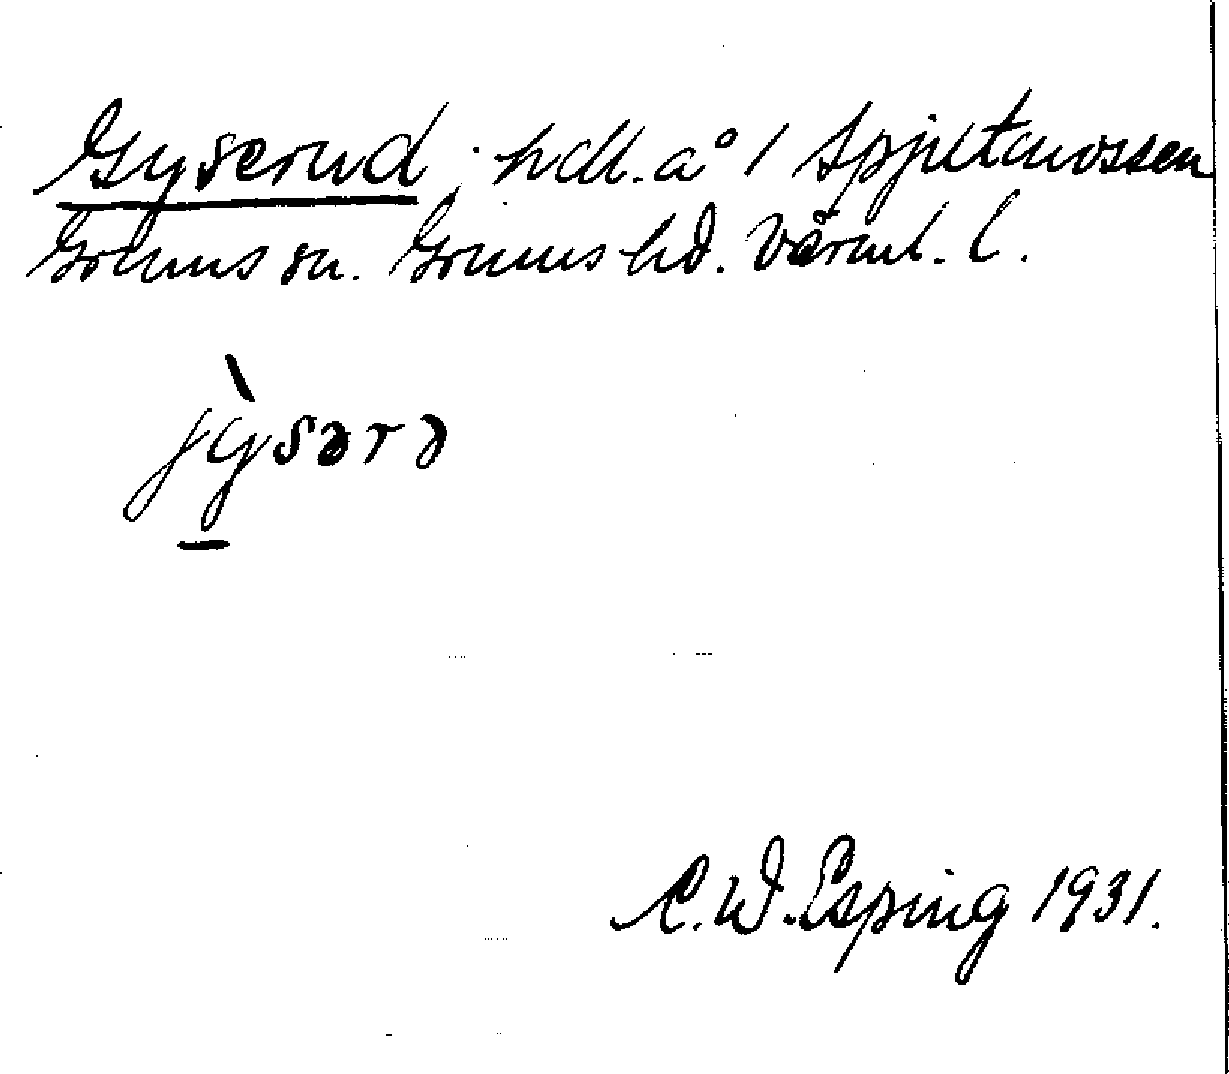 Gyserud; hdl. å 1 Spjutansåsen
Grums sn. Grums hd. Värml. l.
jỳ̠sərə
C. W. Esping 1931.